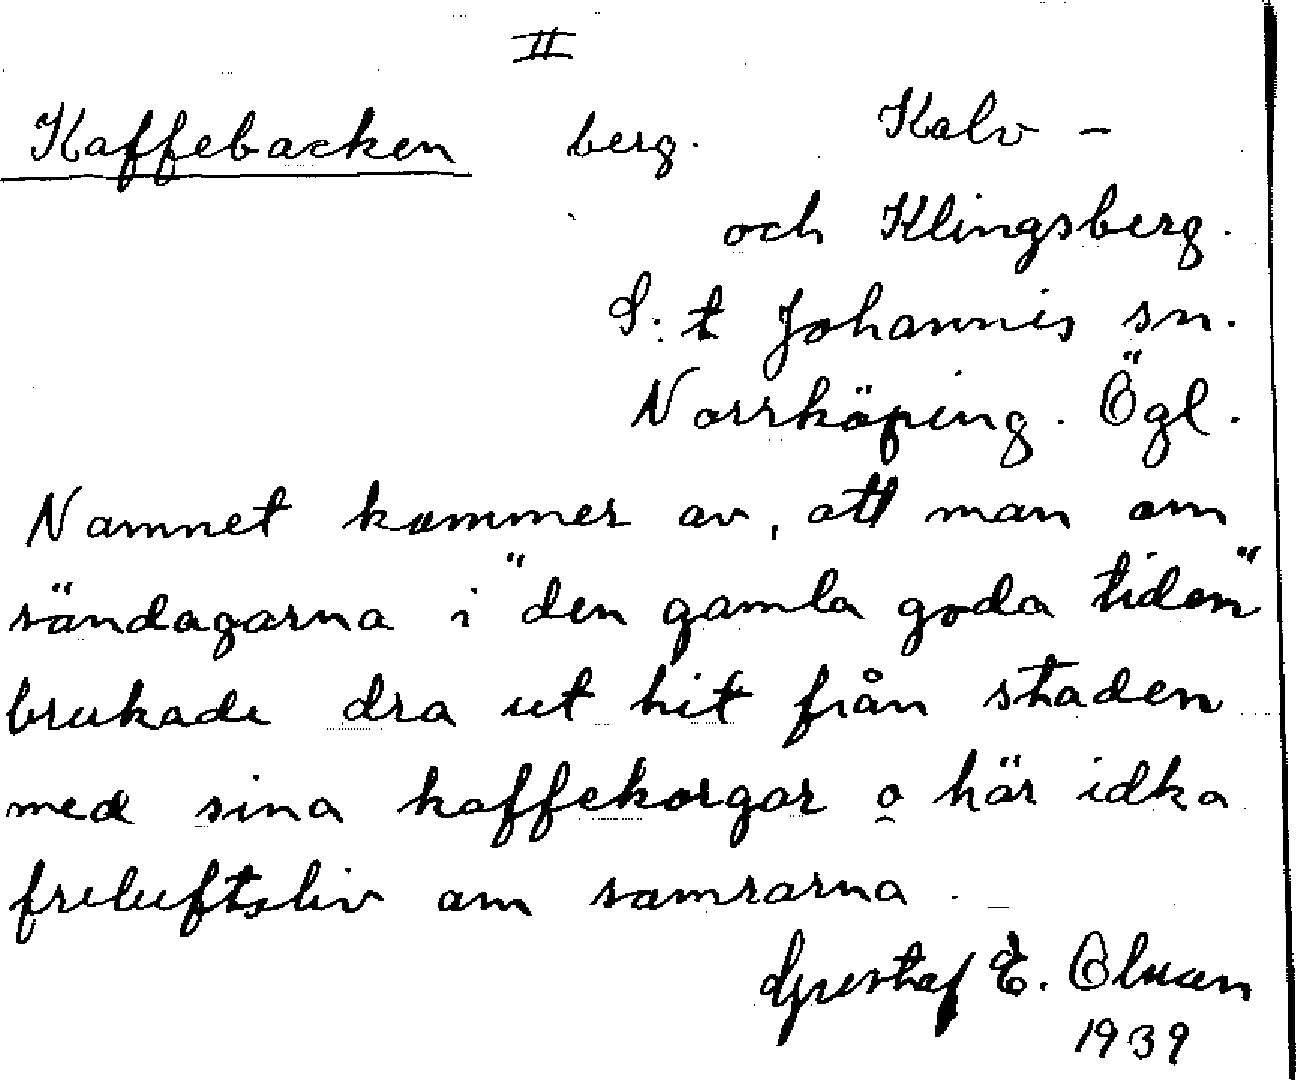 II
Kaffebacken berg. Kalv -
och Klingsberg.
S:t Johannis sn.
Norrköping. Ögl.
Namnet kommer av, att man om
söndagarna i "den gamla goda tiden"
brukade dra ut hit från staden
med sina kaffekorgar o här idka
friluftsliv om somrarna.
Gustaf E. Olsson
1939